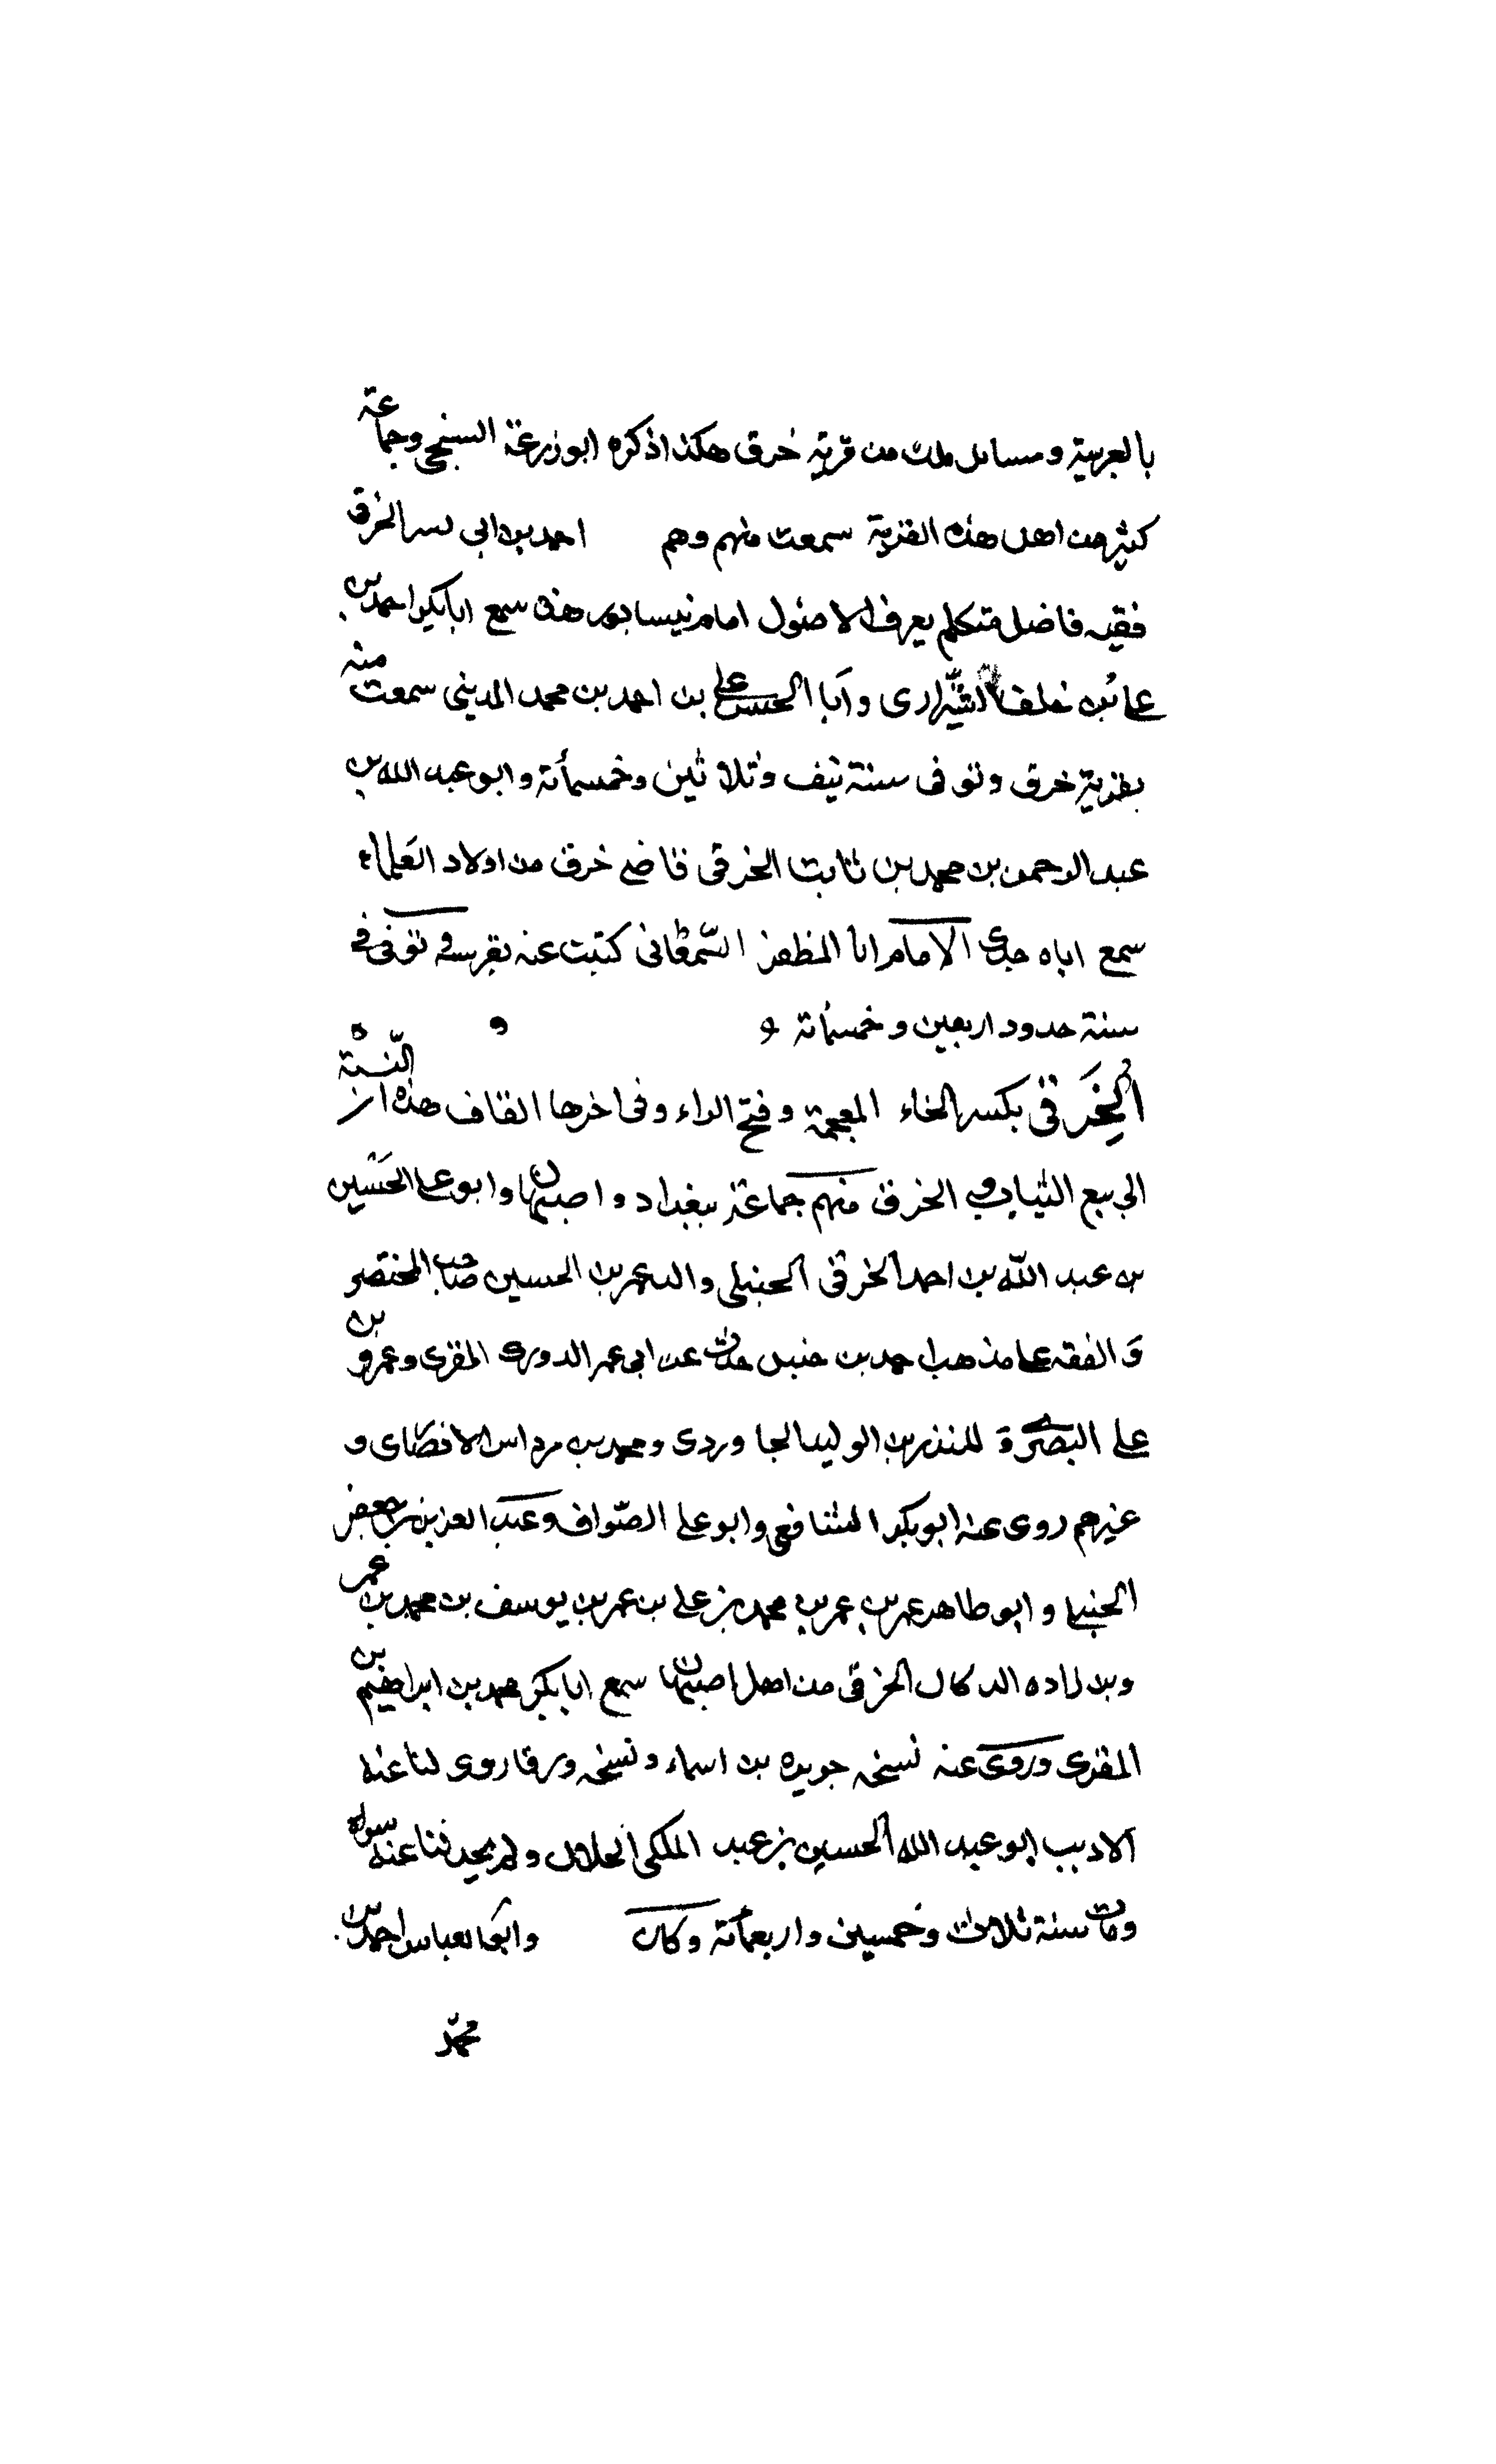 بالعربية ومسائل ملت من قرية خرق هكذا ذكره ابو زرعة السنجى وجماعة
كثير من اهل هذه القرية سمعت منهم وهم احمد بن ابى بسر الخرقى
فقيه فاضل متكلم يعرف الاصول امام نيسابور هذه سمع ابا بكر احمد بن
على بن خلف الشيرازى وابا الحسن على بن احمد بن محمد المدينى سمعت منه
بقرية خرق وتوفى سنة نيف وثلاثين وخمسمأئة وابو عبد الله بن
عبد الرحمن بن محمد بن ثابت الخرقى قاضى خرق من اولاد العلماء
سمع اباه جدى الامام ابا المظفر السمعانى كتبت عنه بقريته وتوفى فى
سنة حدود اربعين وخمسمائة
الخِرَقى بكسر الخاء المعجمة وفتح الراء وفى اخرها القاف هذه النسبة
الى بيع الثياب والخرق منهم جماعة ببغداد واصبهان وابو على الحسين
بن عبد الله بن احمد الخرقى الحنبلى والد عمر بن الحسين صاحب المختصر
فى الفقه على مذهب احمد بن حنبل حدث عن ابى عمر الدورى المقرى وعمرو بن
على البصرى للمنذر بن الوليد الجاوردى ومحمد بن مرداس الانصارى و
غيرهم روى عنه ابو بكر الشافعى وابو على الصواف وعبد العزيز بن جعفر
الحنبلى وابو طاهر عمر بن عمر بن محمد بن على بن عمر بن يوسف بن محمد بن عمر
وبن زاده الدكال الخرقى من اهل اصبهان سمع ابا بكر محمد بن ابراهيم بن
المقرى وروى عنه نسخه جويره بن اسماء ونسخه ورقا روى لنا عنه
الاديب ابو عبد الله الحسين بن عبد الملك الخلال ولم يحدثنا عنه سواه
ومات سنة ثلاث وخمسين واربعمائة وكان وابو العباس احمد بن
محمد